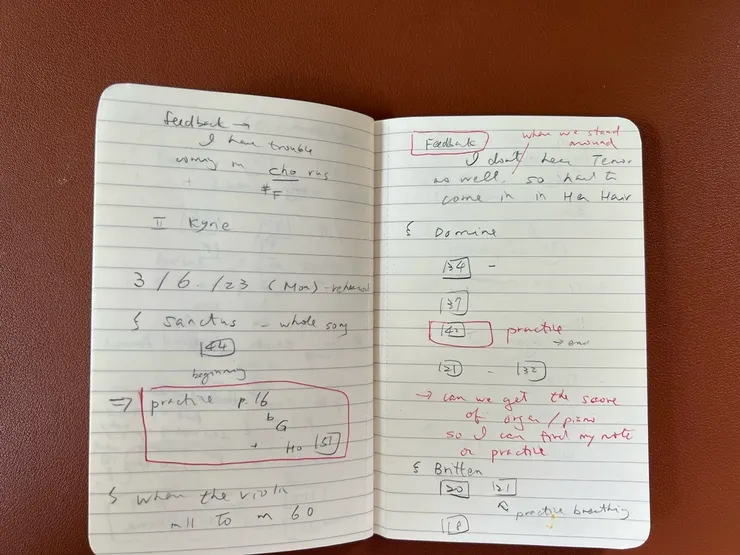 feedback →
I have trouble
coming in chorus
#F
II Kyrie
3/6./23 (Mon) - rehearsal
{ Sanctus - whole song
144
beginning
⇒ practice p.16
b G
+ Ho 151
{ when the violin
m11 to m 60
Feedback when we stand
around
I don't hear Tenor
as well, so hard to
come in in Her Hair
{ Domine
134 -
137
142 practice
→ end
121 - 132
→ can we get the score
of organ/piano
so I can find my note
or practice
{ Britten
120 121
practice breathing